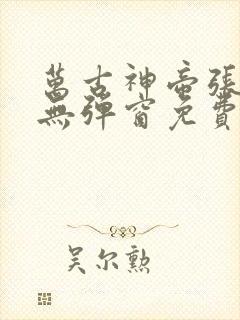 萬古神帝張
無彈窗免費
吴尔勲